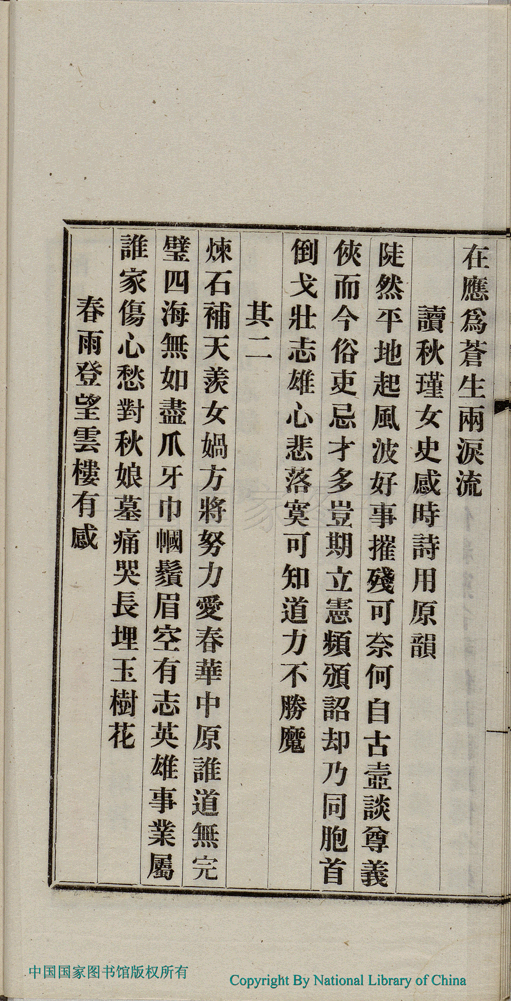 在應爲蒼生兩淚流
讀秋瑾女史感時詩用原韻
陡然平地起風波好事摧殘可奈何自古壼談尊義
俠而今俗吏忌才多豈期立憲頻頒詔却乃同胞首
倒戈壯志雄心悲落寞可知道力不勝魔
其二
煉石補天羨女媧方將努力愛春華中原誰道無完
璧四海無如盡爪牙巾幗鬚眉空有志英雄事業屬
誰家傷心愁對秋娘墓痛哭長埋玉樹花
春雨登望雲樓有感
中国国家图书馆版权所有
Copyright By National Library of China